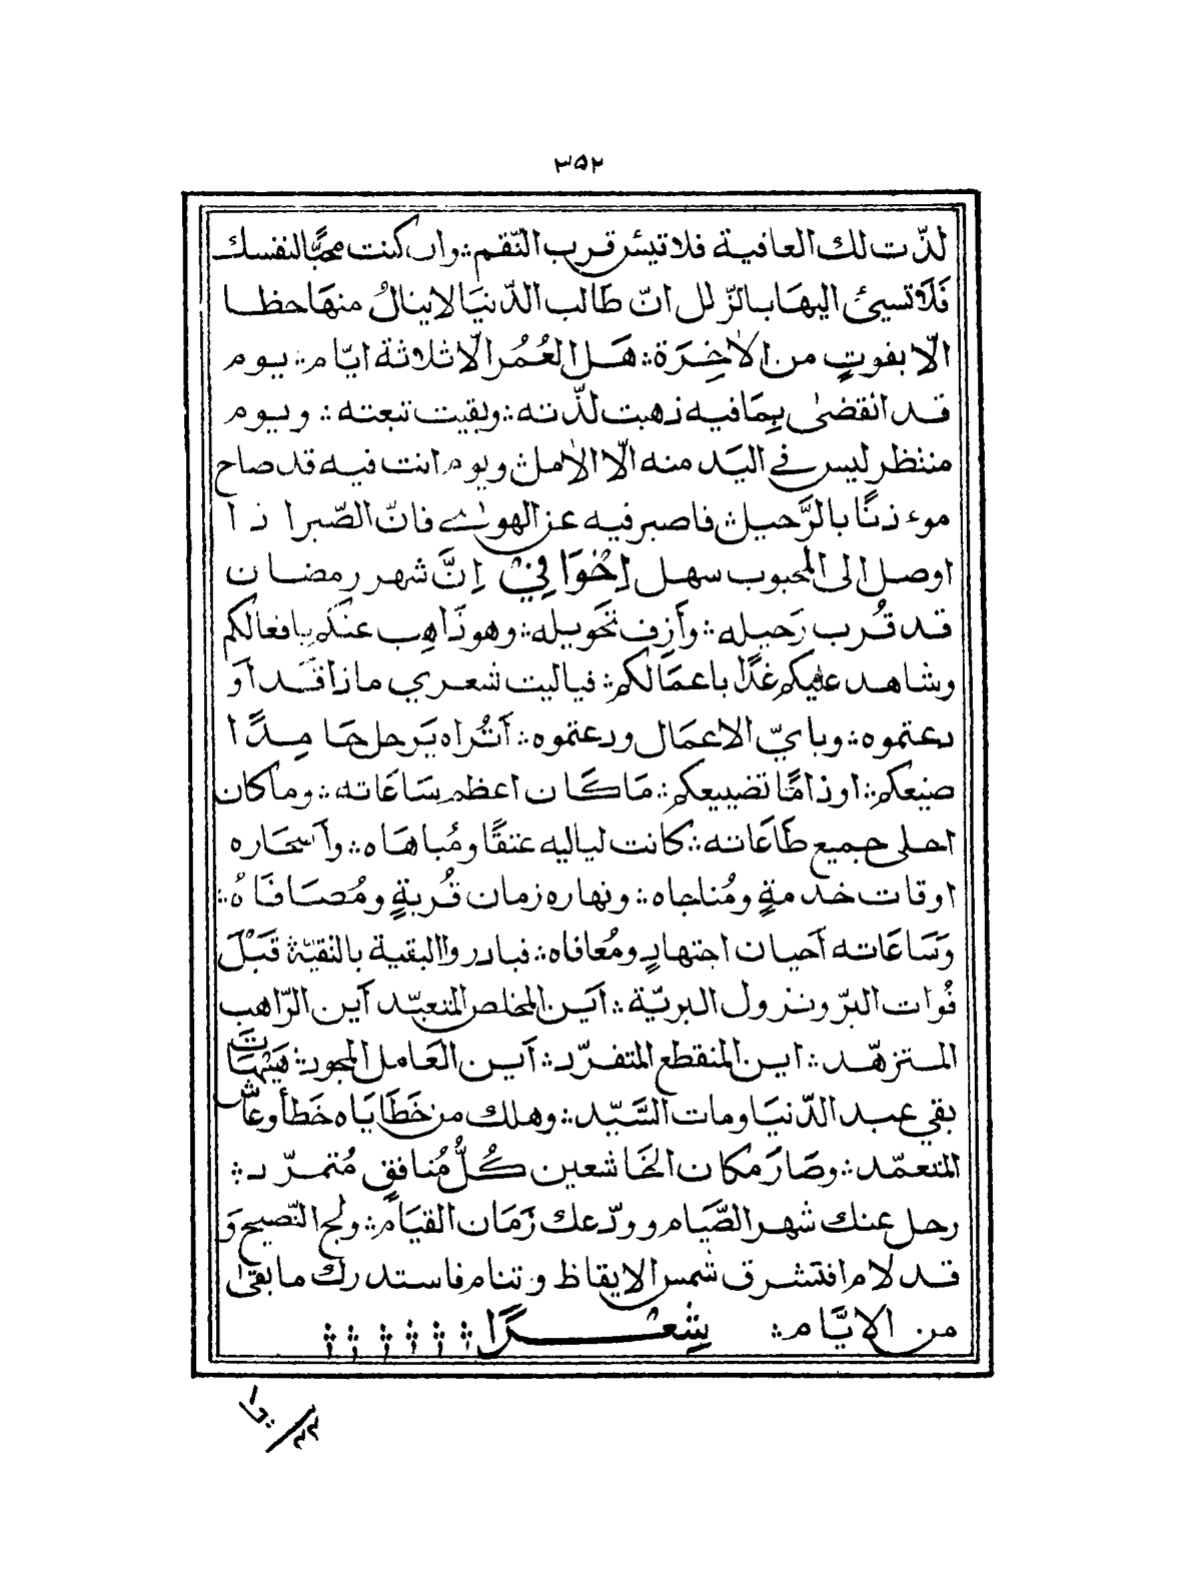 ٣٥٢
لذّت لك العافية فلا تيئس قرب النّقم ؞ وان كنت محبًّا لنفسك
فَلَا تسيئ اليهَا بالزّلل انّ طَالب الدّنيَا لا ينالُ منهَا حظا
الّا بفوتٍ من الاٰخِرَة ؞ هَل العُمُر الّا ثلاثة ايّام ؞ يوم
قد انقضىٰ بِمَا فيه ذهبت لذّته ؞ وبقيت تبعته ؞ ويوم
منتظر ليس في اليَد منه الّا الاٰمل ؞ ويوم انت فيه قد صاح
موءذنًا بالرَّحيل ؞ فاصبر فيه عن الهوىٰ فانّ الصّبر اذا
اوصل الى المحبوب سهل اِخْوَاني ؞ اِنَّ شهر رمضان
قد قُرب رَحيله ؞ وأَزِف تَحويله ؞ وهو ذَاهِب عنكم بافعالكم
وشاهد عليكم غدًا باعمَالكم ؞ فياليت شعري ماذا قد اَو
دعتموه ؞ وبايّ الاعمَال ودعتموه ؞ اَتُراه يَرحل حَامِدًا
صنيعكم ؞ او ذامًّا تضييعكم ؞ مَا كَان اعظم سَاعَاته ؞ وما كان
احلى جميع طَاعَاته ؞ كانت لياليه عتقًا ومُباهَاه ؞ وأسحَاره
اوقات خدمةٍ ومُناجاه ؞ ونهاره زمان قُربةٍ ومُصَافَاهُ ؞
وَسَاعَاته اَحيان اجتهادٍ ومُعافاه ؞ فبادروا البقية بالنقيّة قَبْلَ
فُوات البرّ ونزول البريّة ؞ اَين المخلص المتعبّد اَين الرّاهب
المتزهّد ؞ اين المنقطع المتفرّد ؞ اَين العَامل المجود ؞ هَيْهَات
بقي عبد الدّنيَا ومات السَّيّد ؞ وهلك من خَطَايَاه خَطأ وعَاش
المتعمّد ؞ وصَارَ مكان الخَاشعين كُلُّ مُنافقٍ مُتمرّد ؞
رحل عنك شهر الصَّيَام وودّعك زَمَان القيَام ؞ ولج النّصيح وَ
قد لام افتشرق شمس الايقاظ وتنام فاستدرك ما بقىٰ
من الايَّام ؞ شِعْرًا ؞ ؞ ؞ ؞ ؞ ؞